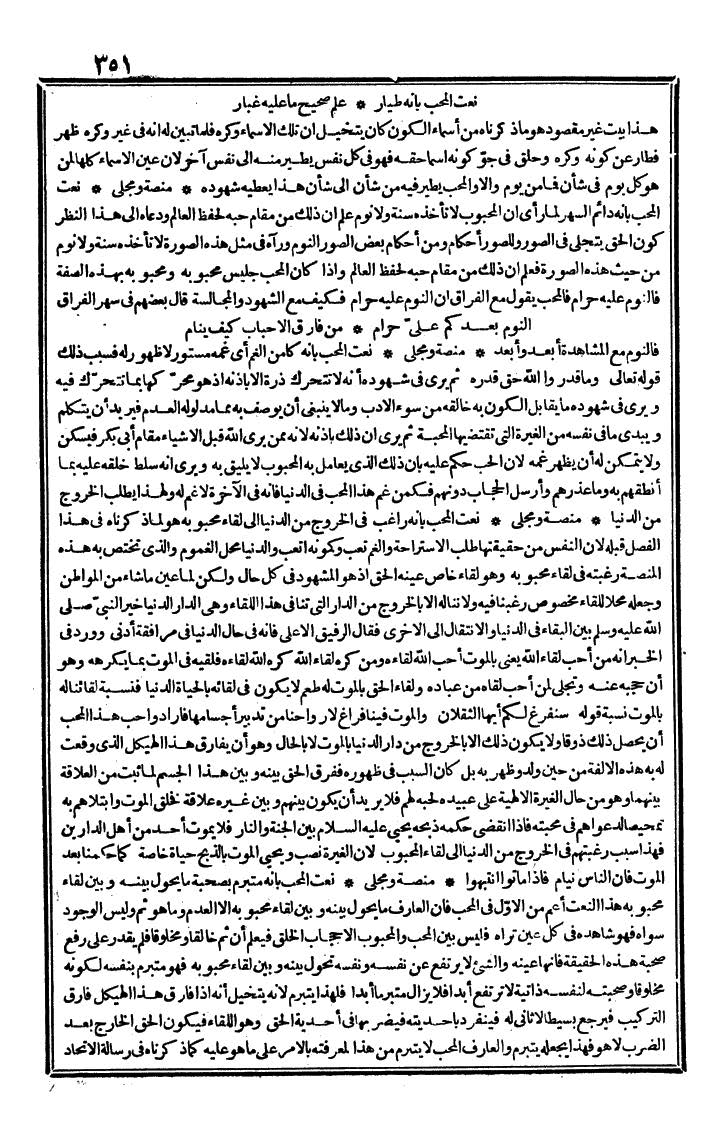 ٣٥١
نعت المحب بانه طيار * علم صحيح ما عليه غبار
هذا بيت غير مقصود هو ماذكرناه من أسماء الكون كان يتخيل ان تلك الاسماء وكره فلما تبين له انه فى غير وكره ظهر
فطار عن كونه وكره وحلق فى جو كونه اسماحقه فهو فى كل نفس يطير منه الى نفس آخر لان عين الاسماء كلها لمن
هو كل يوم فى شأن فما من يوم والا والمحب يطير فيه من شأن الى شأن هذا يعطيه شهوده * منصة ومجلى * نعت
المحب بانه دائم السهر لما رأى ان المحبوب لا تأخذه سنة ولا نوم علم ان ذلك من مقام حبه لحفظ العالم ودعاه الى هذا النظر
كون الحق يتجلى فى الصور وللصور أحكام ومن أحكام بعض الصور النوم ورآه فى مثل هذه الصورة لا تأخذه سنة ولا نوم
من حيث هذه الصورة فعلم ان ذلك من مقام حبه لحفظ العالم واذا كان المحب جليس محبوبه ومحبوبه بهذه الصفة
فالنوم عليه حرام فالمحب يقول مع الفراق ان النوم عليه حرام فكيف مع الشهود والمجالسة قال بعضهم فى سهر الفراق
النوم بعدكم علىّ حرام * من فارق الاحباب كيف ينام
فالنوم مع المشاهدة أبعد وأبعد * منصة ومجلى * نعت المحب بانه كامن الغم أى غمه مستور لا ظهور له فسبب ذلك
قوله تعالى وما قدروا الله حق قدره ثم يرى فى شهوده أنه لا تتحرك ذرة الا باذنه اذ هو محرّكها بما تتحرّك فيه
ويرى فى شهوده ما يقابل الكون به خالقه من سوء الادب وما لا ينبغى أن يوصف به مما مدلوله العدم فيريد أن يتكلم
ويبدى ما فى نفسه من الغيرة التى تقتضيها المحبة ثم يرى ان ذلك باذنه لانه ممن يرى الله قبل الاشياء مقام أبى بكر فيسكن
ولا يتمكن له أن يظهر غمه لان الحب حكم عليه بان ذلك الذى يعامل به المحبوب لا يليق به ويرى انه سلط خلقه عليه بما
أنطقهم به وما عذرهم وأرسل الحجاب دونهم فكمن غم هذا المحب فى الدنيا فانه فى الآخرة لا غم له ولهذا يطلب الخروج
من الدنيا * منصة ومجلى * نعت المحب بانه راغب فى الخروج من الدنيا الى لقاء محبوبه هو لما ذكرناه فى هذا
الفصل قبله لان النفس من حقيقتها طلب الاستراحة والغم تعب وكونه أتعب والدنيا محل الغموم والذى تختص به هذه
المنصة رغبته فى لقاء محبوبه وهو لقاء خاص عينه الحق اذ هو المشهود فى كل حال ولكن لما عين ماشاء من المواطن
وجعله محلا للقاء مخصوص رغبنا فيه ولا نناله الا بالخروج من الدار التى تنافى هذا اللقاء وهى الدار الدنيا خير النبىّ صلى
الله عليه وسلم بين البقاء فى الدنيا والانتقال الى الاخرى فقال الرفيق الاعلى فانه فى حال الدنيا فى مرافقة أدنى وورد فى
الخبر انه من أحب لقاء الله يعنى بالموت أحب الله لقاءه ومن كره لقاء الله كره الله لقاءه فلقيه فى الموت بما يكرهه وهو
أن حجبه عنه وتجلى لمن أحب لقاءه من عباده ولقاء الحق بالموت له طعم لا يكون فى لقائه بالحياة الدنيا فنسبة لقائنا له
بالموت نسبة قوله سنفرغ لكم أيها الثقلان والموت فينا فراغ لارواحنا من تدبير أجسامها فاراد واحب هذا المحب
أن يحصل ذلك ذوقا ولا يكون ذلك الا بالخروج من دار الدنيا بالموت لا بالحال وهو أن يفارق هذا الهيكل الذى وقعت
له به هذه الالفة من حين ولد وظهر به بل كان السبب فى ظهوره ففرق الحق بينه وبين هذا الجسم لما ثبت من العلاقة
بينهما وهو من حال الغيرة الالهية على عبيده لحبه لهم فلا يريد أن يكون بينهم وبين غيره علاقة فخلق الموت وابتلاهم به
تمحيصا لدعواهم فى محبته فاذا انقضى حكمه ذبحه يحيى عليه السلام بين الجنة والنار فلا يموت أحد من أهل الدارين
فهذا سبب رغبتهم فى الخروج من الدنيا الى لقاء المحبوب لان الغيرة نصب ويحيى الموت بالذبح حياة خاصة كما حكمنا بعد
الموت فان الناس نيام فاذا ماتوا انتبهوا * منصة ومجلى * نعت المحب بانه متبرم بصحبة ما يحول بينه وبين لقاء
محبوبه هذا النعت أعم من الاوّل فى المحب فان العارف ما يحول بينه وبين لقاء محبوبه الا العدم وما هو ثم وليس الوجود
سواه فهو شاهده فى كل عين تراه فليس بين المحب والمحبوب الا حجاب الخلق فيعلم أن ثم خالقا ومخلوقا فلم يقدر على رفع
صحبة هذه الحقيقة فانها عينه والشئ لا يرتفع عن نفسه ونفسه تحول بينه وبين لقاء محبوبه فهو متبرم بنفسه لكونه
مخلوقا وصحبته لنفسه ذاتية لا ترتفع أبدا فلا يزال متبرما أبدا فلهذا يتبرم لانه يتخيل أنه اذا فارق هذا الهيكل فارق
التركيب فيرجع بسيطا لاثانى له فينفرد باحديته فيضربها فى أحدية الحق وهو اللقاء فيكون الحق الخارج بعد
الضرب لا هو فهذا يجعله يتبرم والعارف المحب لا يتبرم من هذا لمعرفته بالامر على ما هو عليه كما ذكرناه فى رسالة الاتحاد